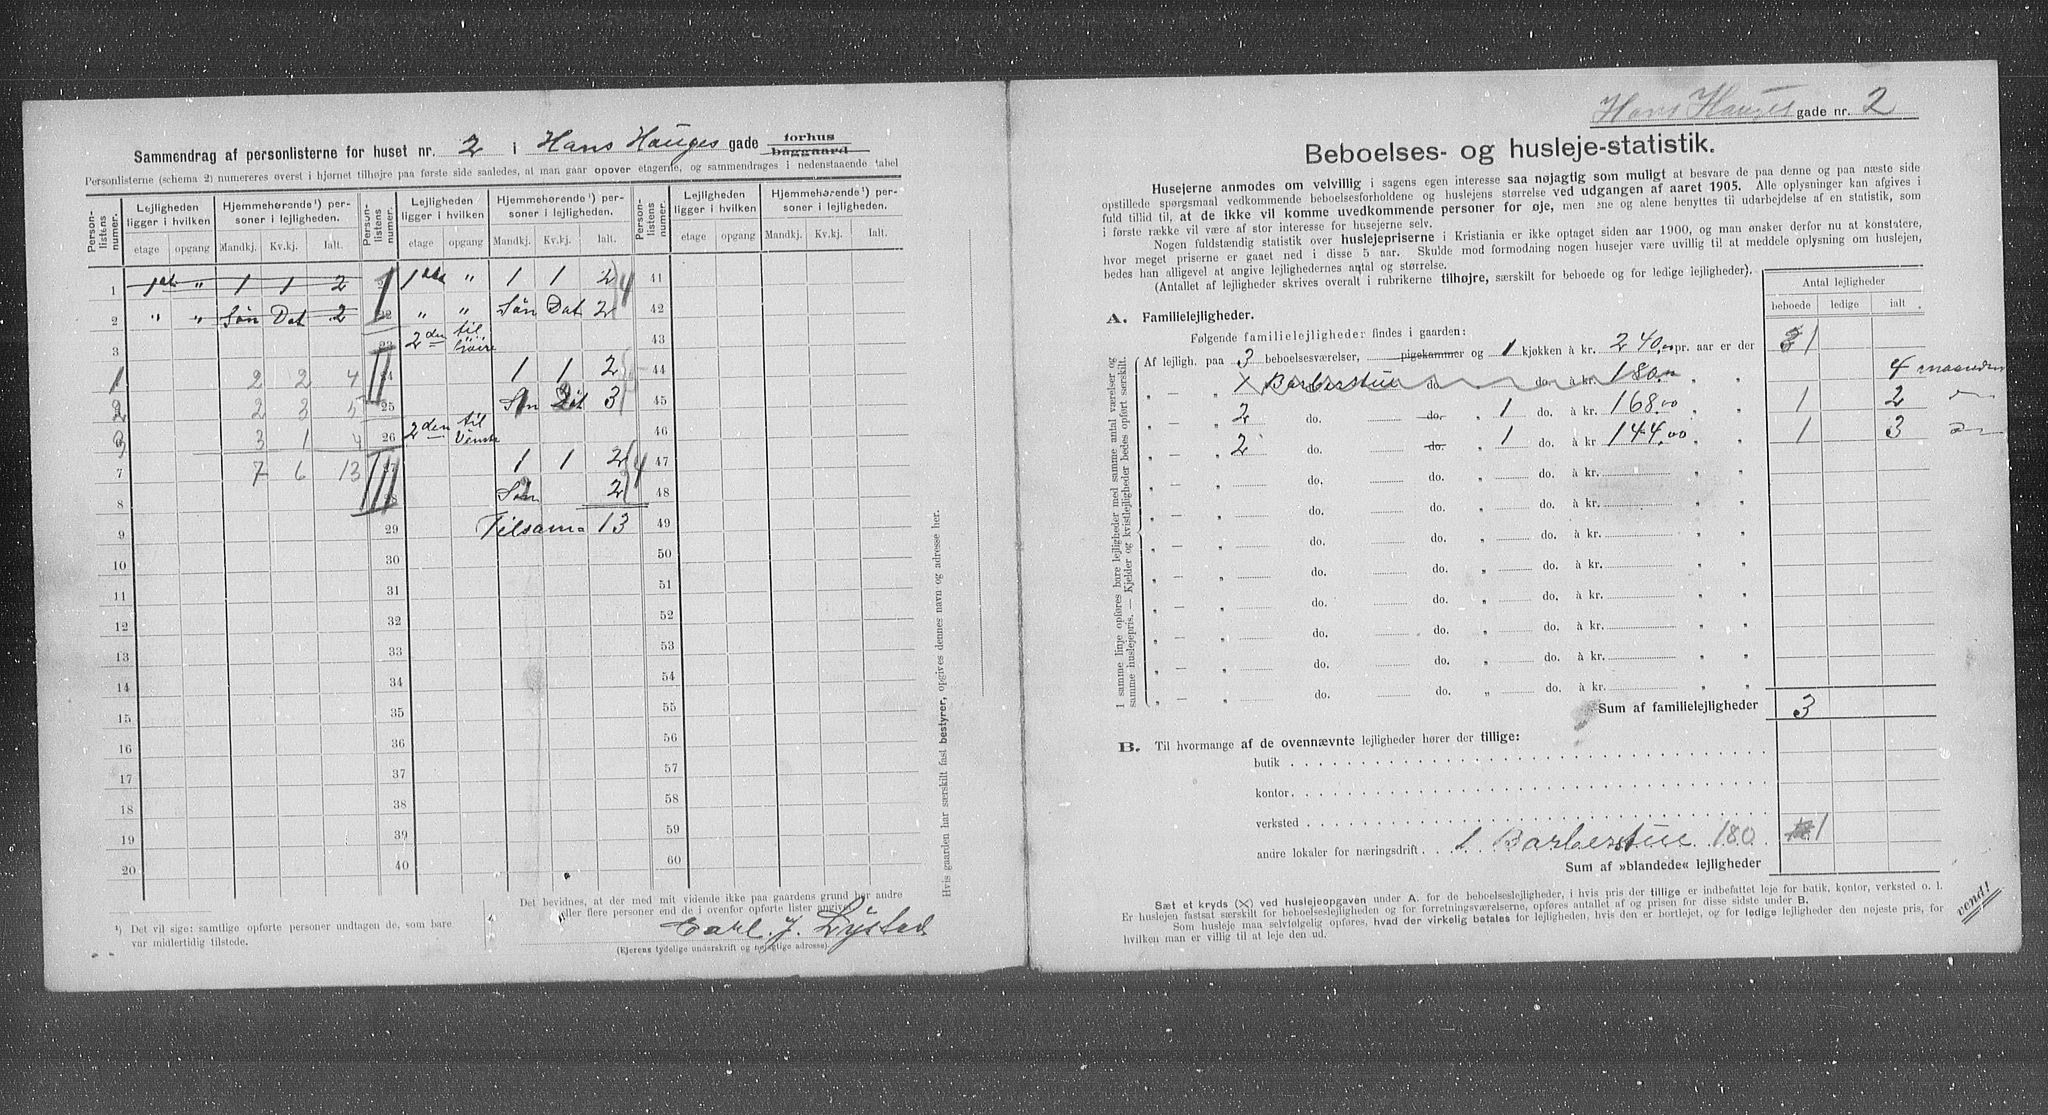 Sammendrag af personlisterne for huset nr. 2 i Hans Hauges gade forhus baggaard
Personlisterne (schema 2) numereres øverst i hjørnet tilhøjre paa første side saaledes, at man gaar opover etagerne, og sammendrages i nedenstaaende tabel
Person-listens numer. Lejligheden ligger i hvilken Hjemmehørende¹) personer i lejligheden. Person-listens numer. Lejligheden ligger i hvilken Hjemmehørende¹) personer i lejligheden. Person-listens numer. Lejligheden ligger i hvilken Hjemmehørende¹) personer i lejligheden.
etage opgang Mandkj. Kv.kj. Ialt. etage opgang Mandkj. Kv.kj. Ialt. etage opgang Mandkj. Kv.kj. Ialt.
1 1ste " 1 1 2 1ste " 1 1 2 4 41
2 " " Søn Dat 2 22 " " Søn Dat 2 42
3 23 2den til 43
1 2 2 4 24 1 1 2 44
2 2 3 5 25 Søn Dat 3 45
3 3 1 4 26 2den til Venste 46
7 7 6 13 1 1 2 4 47
8 Søn 2 48
9 29 Tilsama 13 49
10 30 50
11 31 51
12 32 52
13 33 53
14 34 54
15 35 55
16 36 56
17 37 57
18 38 58
19 39 59
20 40 60
¹) Det vil sige: samtlige opførte personer undtagen de, som bare
var midlertidig tilstede.
Det bevidnes, at der med mit vidende ikke paa gaardens grund bor andre
eller flere personer end de i ovenfor opførte lister angivne
Carl. J. Lystad
(Ejerens tydelige underskrift og nøjagtige adresse)
Hvis gaarden har særskilt fast bestyrer, opgives dennes navn og adresse her.
Hans Hauges gade nr. 2
Beboelses- og husleje-statistik.
Husejerne anmodes om velvillig i sagens egen interesse saa nøjagtig som muligt at besvare de paa denne og paa næste side
opstillede spørgsmaal vedkommende beboelsesforholdene og huslejens størrelse ved udgangen af aaret 1905. Alle oplysninger kan afgives i
fuld tillid til, at de ikke vil komme uvedkommende personer for øje, men ene og alene benyttes til udarbejdelse af en statistik, som
i første række vil være af stor interesse for husejerne selv.
Nogen fuldstændig statistik over huslejepriserne i Kristiania er ikke optaget siden aar 1900, og man ønsker derfor nu at konstatere,
hvor meget priserne er gaaet ned i disse 5 aar. Skulde mod formodning nogen husejer være uvillig til at meddele oplysning om huslejen,
bedes han alligevel at angive lejlighedernes antal og størrelse.
(Antallet af lejligheder skrives overalt i rubrikerne tilhøjre, særskilt for beboede og for ledige lejligheder).
Antal lejligheder
beboede ledige ialt
A. Familielejligheder.
Følgende familielejligheder findes i gaarden:
Af lejligh. paa 3 beboelsesværelser, pigekammer og 1 kjøkken à kr. 240,00 pr. aar er der 1
" — " X Barberstue do. do. à kr. 180,00 " " 4 maaneder
" — " 2 do. do. 1 do. à kr. 168,00 " " 1 2
" — " 2 do. do. 1 do. à kr. 144,00 " " 1 3
" — " do. do. " do. à kr. " "
" — " do. do. " do. à kr. " "
" — " do. do. " do. à kr. " "
" — " do. do. " do. à kr. " "
" — " do. do. " do. à kr. " "
" — " do. do. " do. à kr. " "
" — " do. do. " do. à kr. " "
" — " do. do. " do. à kr. " "
I samme linje opføres bare lejligheder med samme antal værelser og
samme huslejepris. — Kjelder og kvistlejligheder bedes opført særskilt.
Sum af familielejligheder 3
B. Til hvormange af de ovennævnte lejligheder hører der tillige:
butik
kontor
verksted
andre lokaler for næringsdrift 1 Barberstue 180 1
Sum af »blandede« lejligheder
Sæt et kryds (×) ved huslejeopgaven under A. for de beboelseslejligheder, i hvis pris der tillige er indbefattet leje for butik, kontor, verksted o. l.
Er huslejen fastsat særskilt for beboelseslejligheder og for forretningsværelserne, opføres antallet af og prisen for disse sidste under B.
Som husleje maa selvfølgelig opføres, hvad der virkelig betales for lejligheden, hvis den er bortlejet, og for ledige lejligheder den nøjeste pris, for
hvilken man er villig til at leje den ud.
vend!